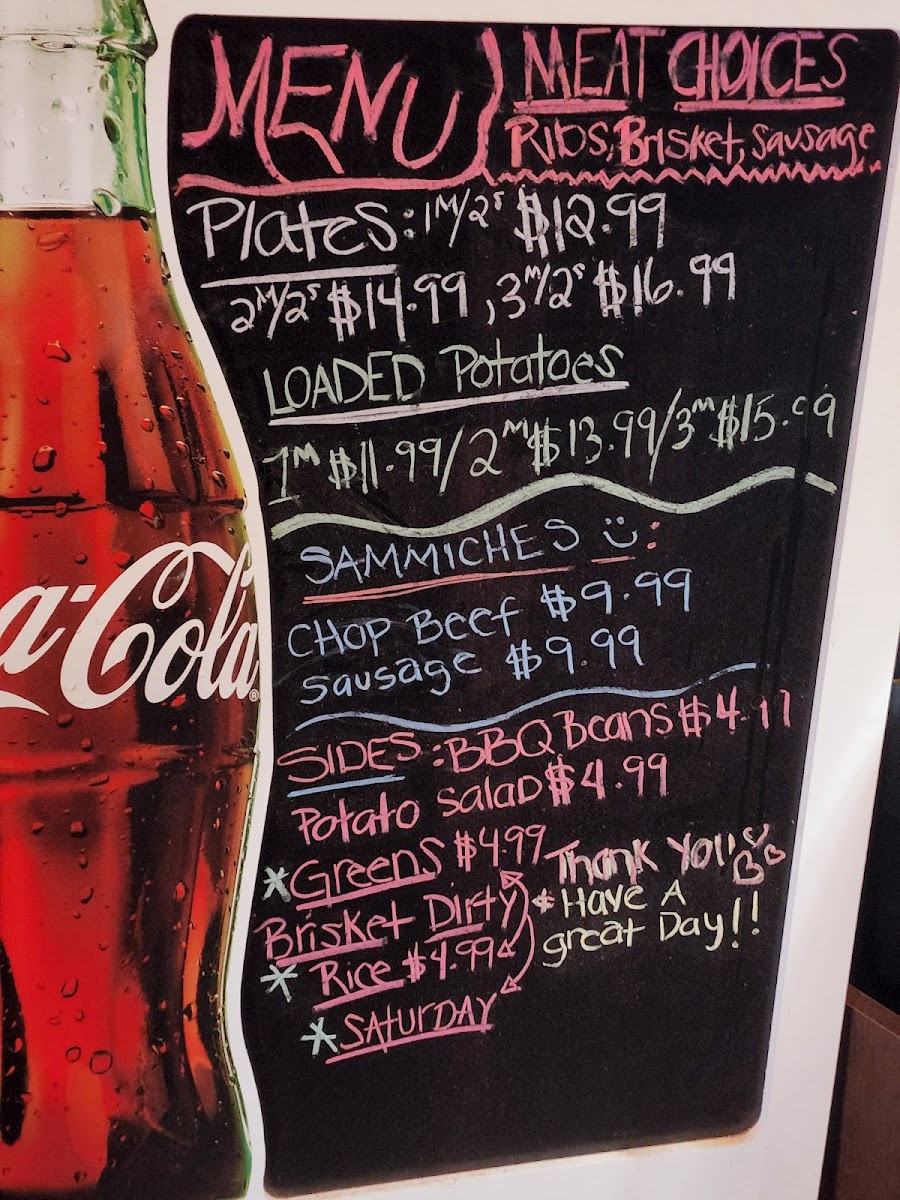 MENU
MEAT CHOICES
Ribs, Brisket, sausage
Plates: 1M/2S $12.99
2M/2S $14.99, 3M/2S $16.99
LOADED Potatoes
1M $11.99/2M $13.99/3M $15.99
SAMMICHES :
CHOP Beef $9.99
sausage $9.99
SIDES: BBQ Beans $4.99
Potato salad $4.99
*Greens $4.99
Brisket Dirty
* Rice $4.99
*SATURDAY
Thank You!!
& Have A
great Day!!
a-Cola®